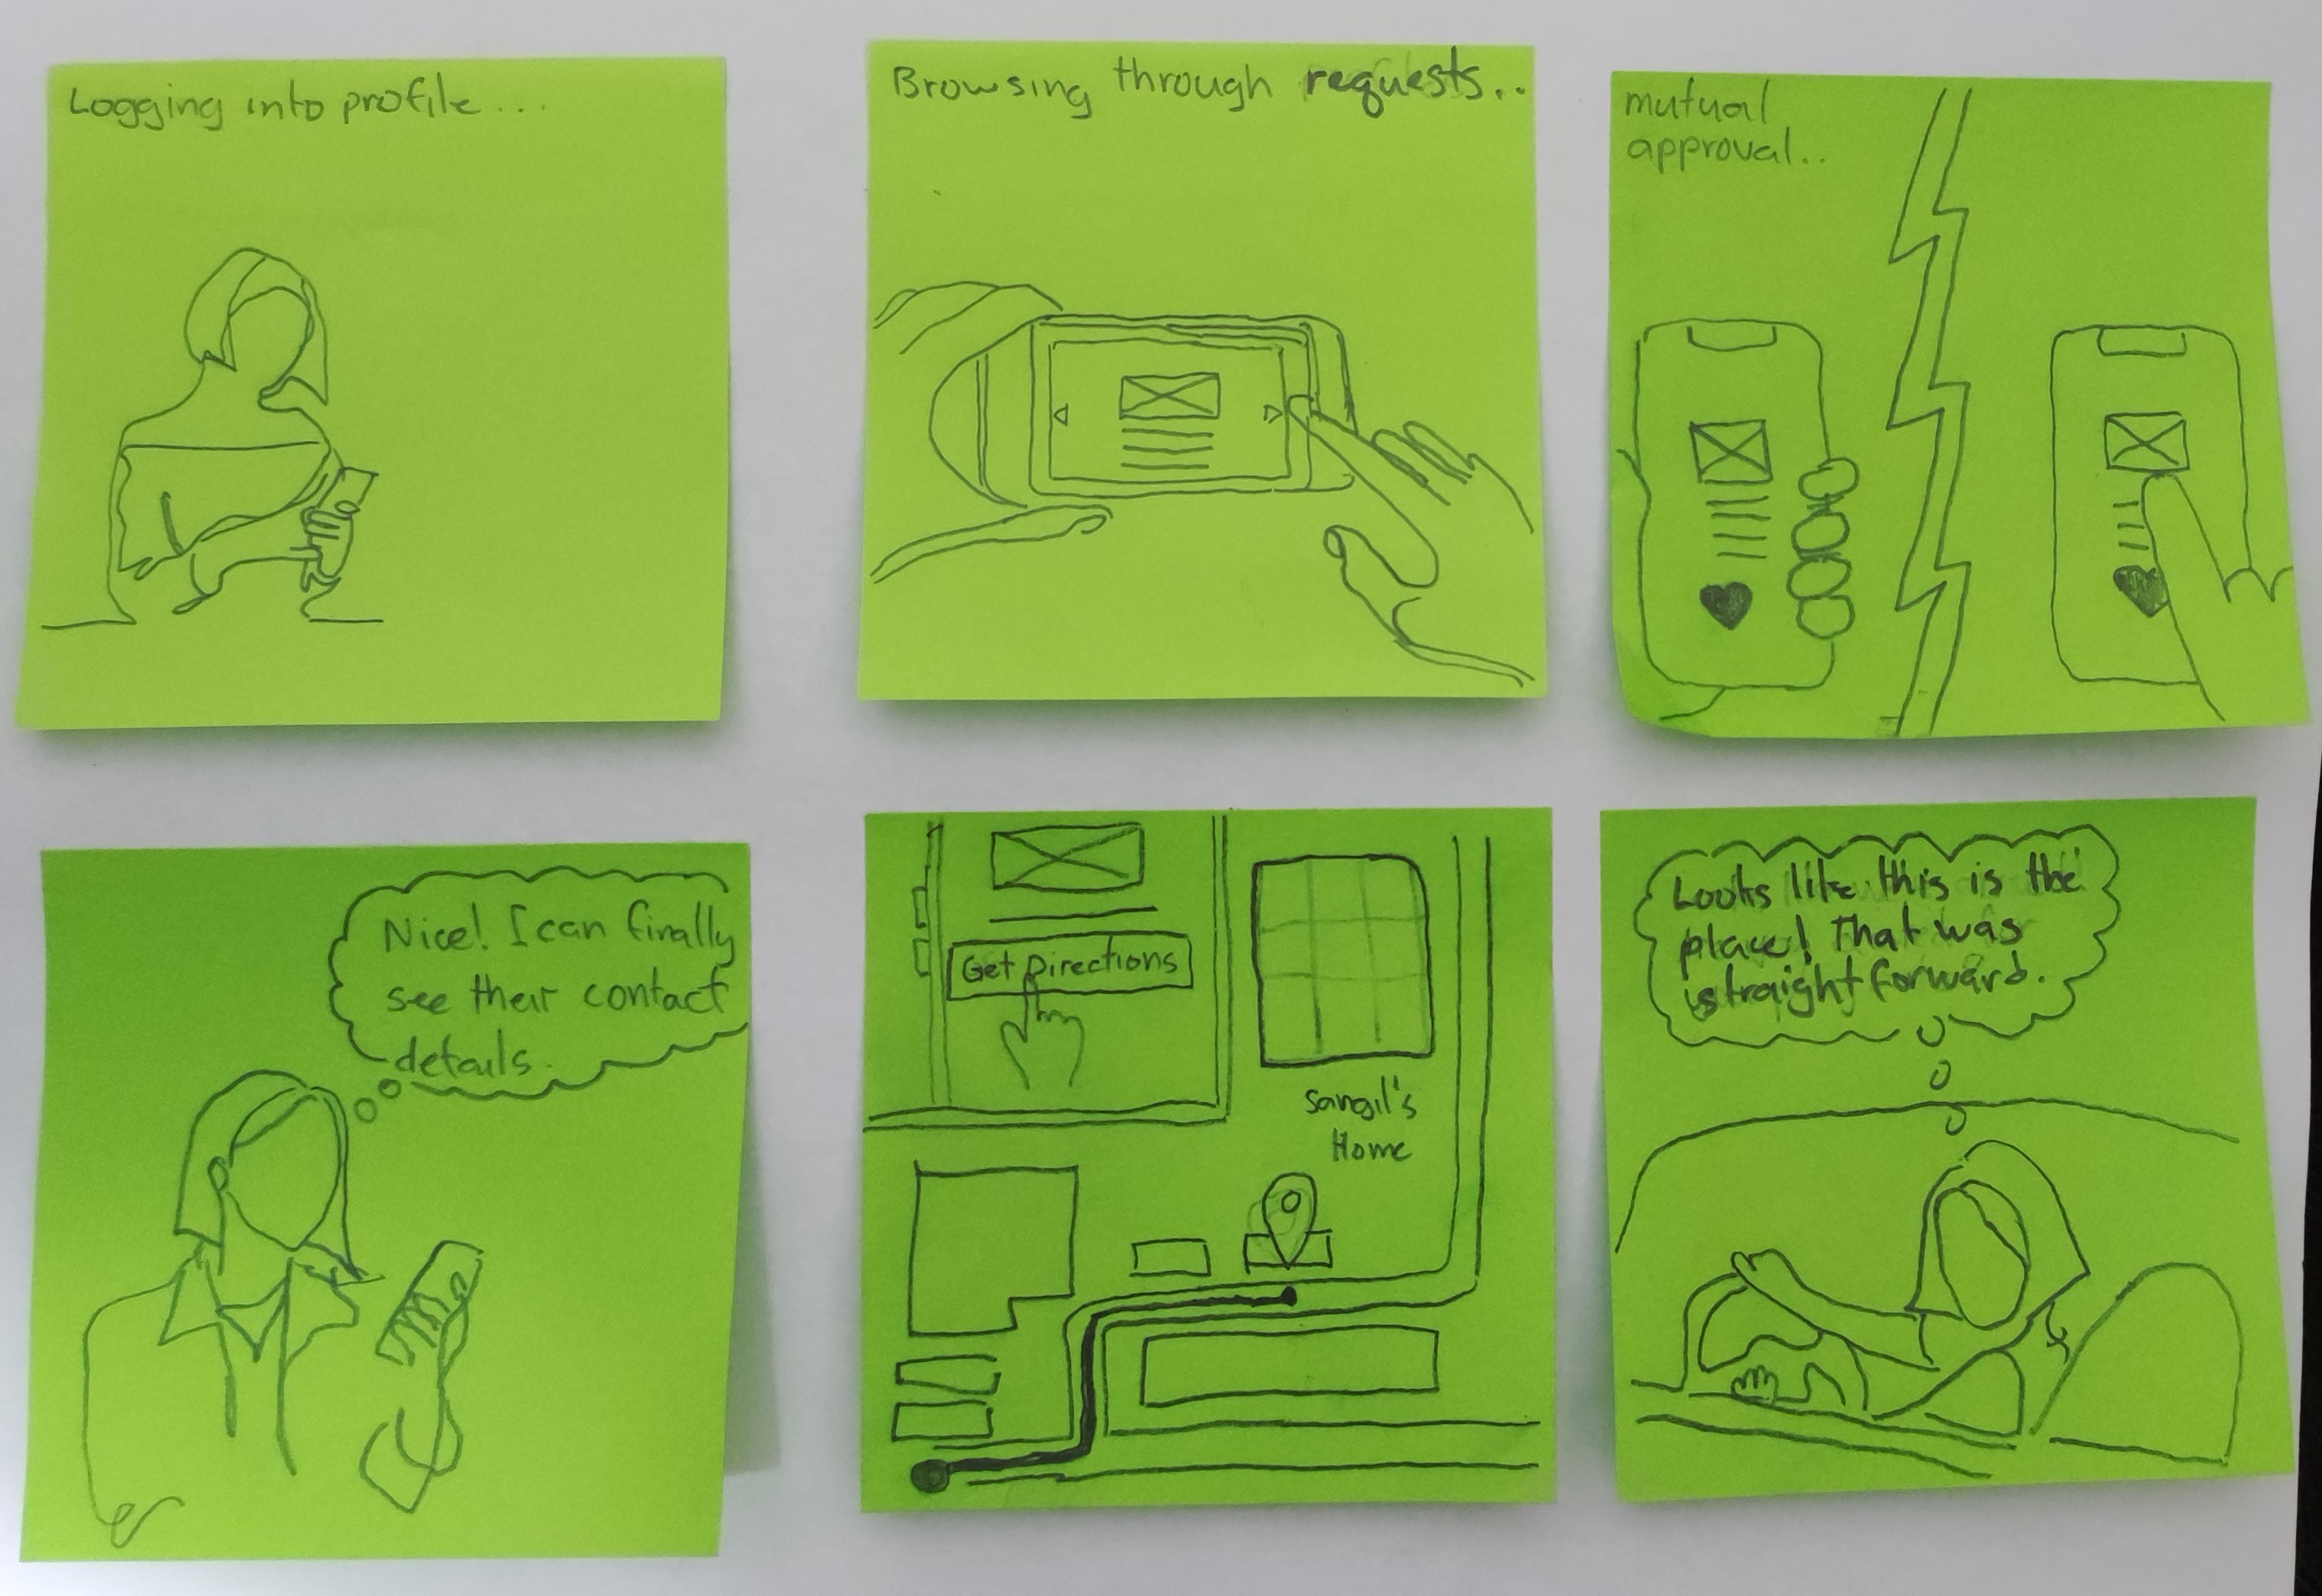 Logging into profile...
Browsing through requests..
mutual
approval..
Nice! I can finally
see their contact
details.
Get Directions
Sangil's
Home
Looks like this is the
place! That was
straight forward.